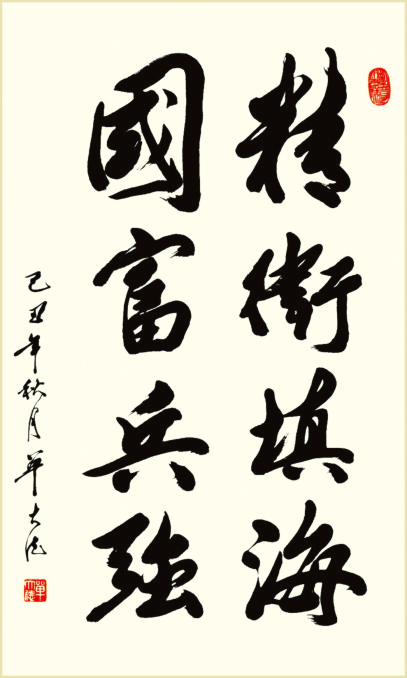 精衛填海
國富兵強
己丑年秋月单大